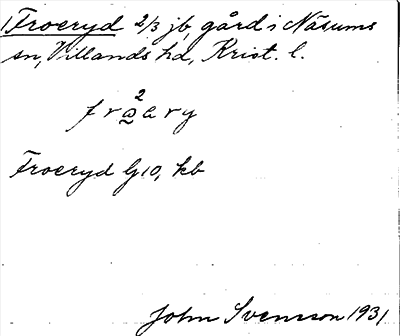 Froeryd 2/3 jb, gård i Näsums
sn, Villands hd, Krist. l.
Froeryd G10, kb
John Svensson 1931